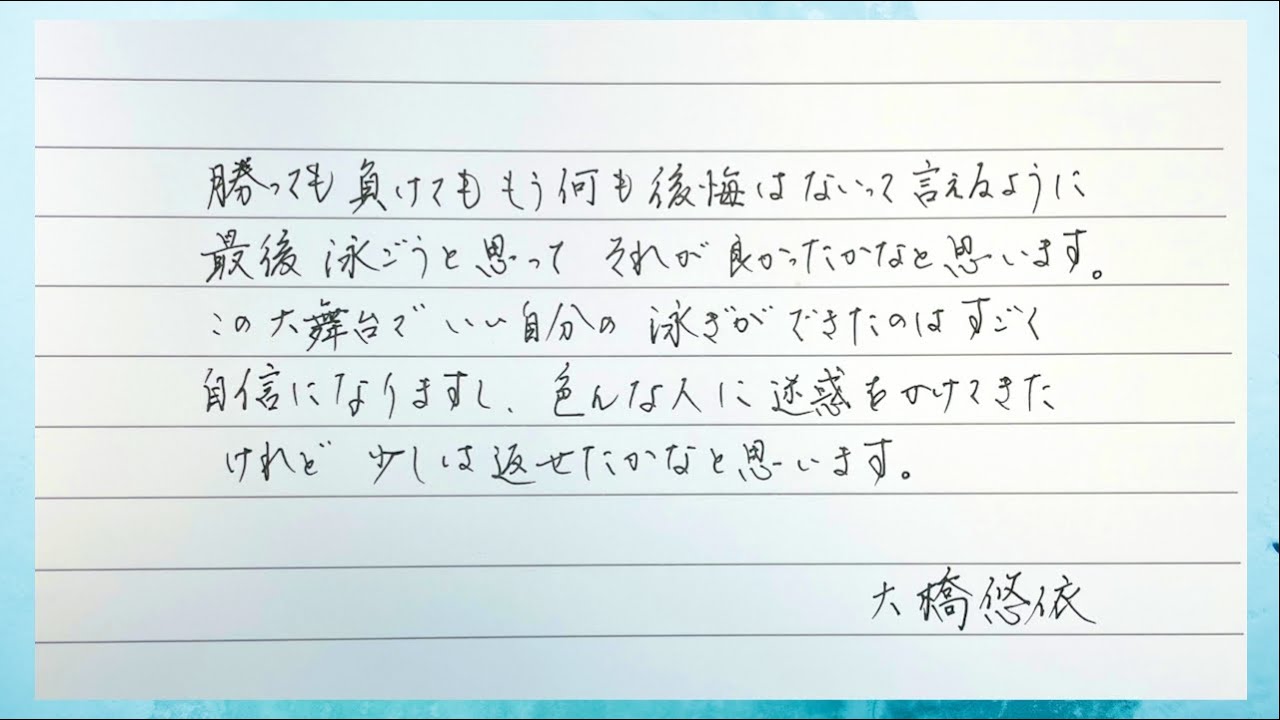 勝っても負けてももう何も後悔はないって言えるように
最後 泳ごうと思って それが良かったかなと思います。
この大舞台でいい自分の 泳ぎができたのはすごく
自信になりますし、色んな人に迷惑をかけてきた
けれど 少しは返せたかなと思います。
大橋悠依